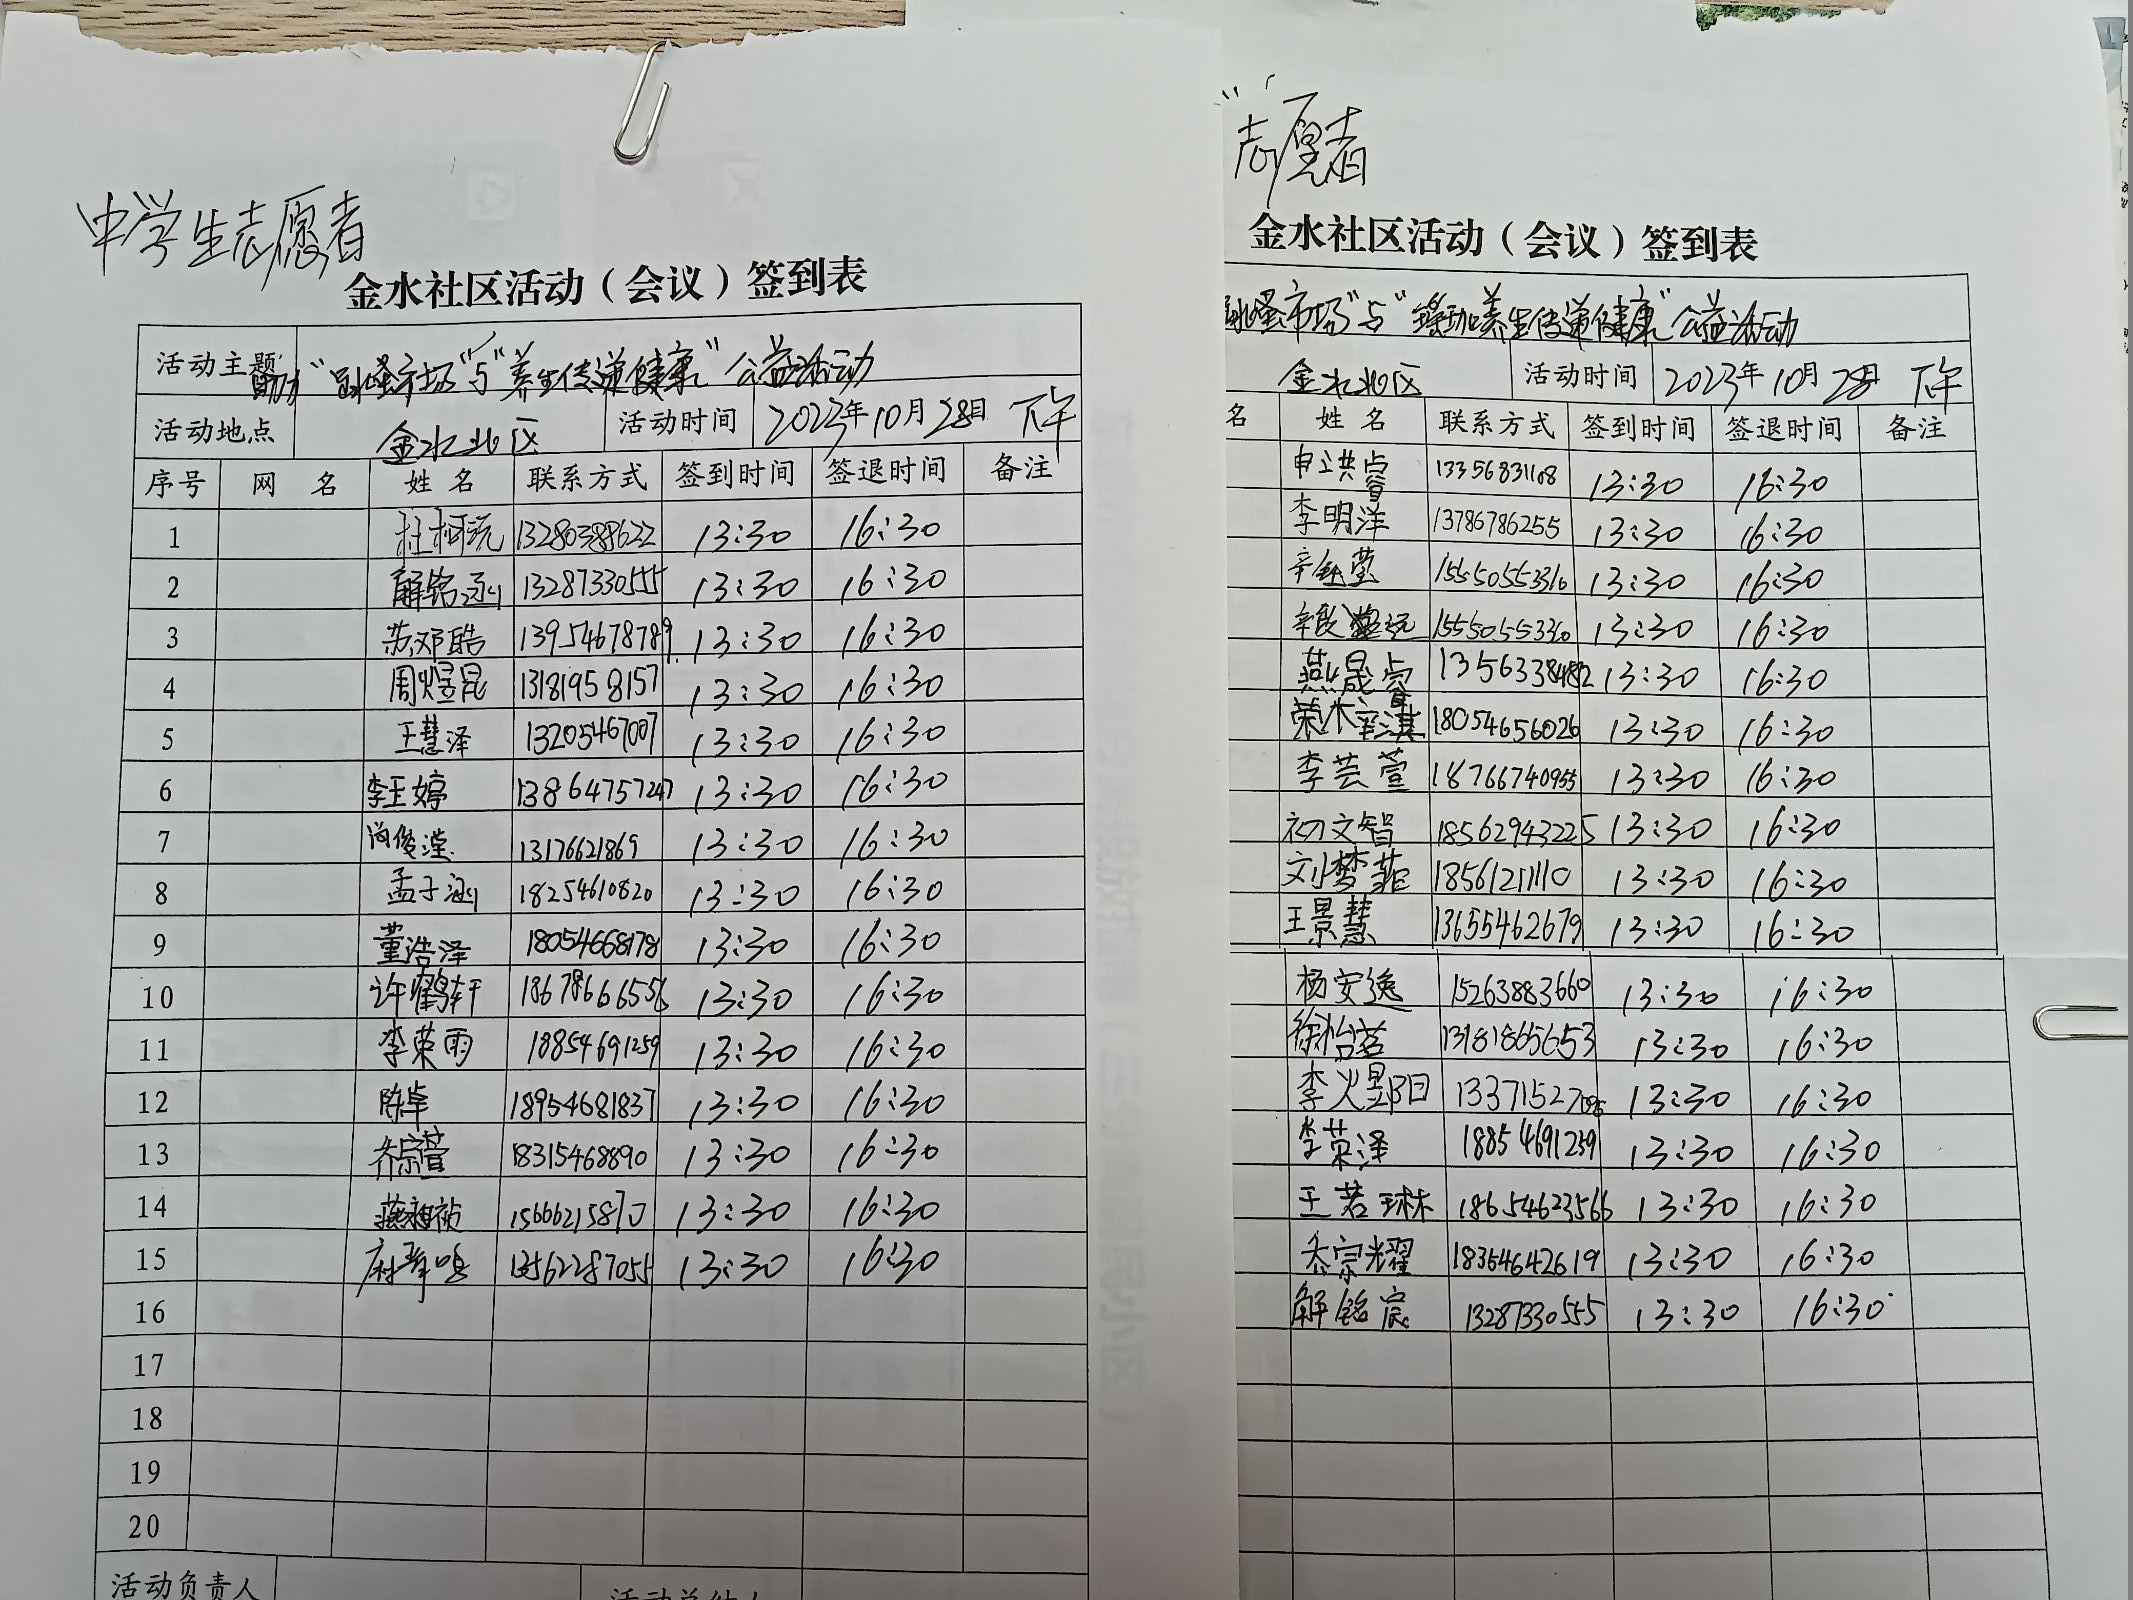 中学生志愿者
金水社区活动（会议）签到表
活动主题 "跳蚤市场"与"养生传递健康"公益活动
活动地点 金水北区 活动时间 2023年10月28日 下午
序号 网 名 姓 名 联系方式 签到时间 签退时间 备注
1 杜柯沅 13280388622 13:30 16:30
2 解铭涵 13287330555 13:30 16:30
3 苏邓皓 13954678789 13:30 16:30
4 周煜昆 13181958157 13:30 16:30
5 王慧泽 13205467007 13:30 16:30
6 李玉婷 13864757247 13:30 16:30
7 尚俊滢 13176621869 13:30 16:30
8 孟子涵 18254610820 13:30 16:30
9 董浩泽 18054668178 13:30 16:30
10 许鹤轩 18678666556 13:30 16:30
11 李荣雨 18854691259 13:30 16:30
12 陈卓 18954681837 13:30 16:30
13 乔宗萱 18315468890 13:30 16:30
14 13:30 16:30
15 13562287055 13:30 16:30
16
17
18
19
20
活动负责人
志愿者
金水社区活动（会议）签到表
跳蚤市场"与" 养生传递健康"公益活动
金水北区 活动时间 2023年10月28日 下午
名 姓 名 联系方式 签到时间 签退时间 备注
申洪睿 13356831108 13:30 16:30
李明洋 13786786255 13:30 16:30
辛钰莹 15550553310 13:30 16:30
15550553310 13:30 16:30
燕晟睿 13:30 16:30
荣木辛淇 18054656026 13:30 16:30
李芸萱 18766740955 13:30 16:30
初文智 18562943225 13:30 16:30
刘梦菲 18561211110 13:30 16:30
王景慧 13655462679 13:30 16:30
杨安逸 15263883660 13:30 16:30
徐怡茗 13181865653 13:30 16:30
李煜阳 13:30 16:30
李荣泽 18854691259 13:30 16:30
王若琳 18654623566 13:30 16:30
乔宗耀 18354642619 13:30 16:30
解铭宸 13287330555 13:30 16:30